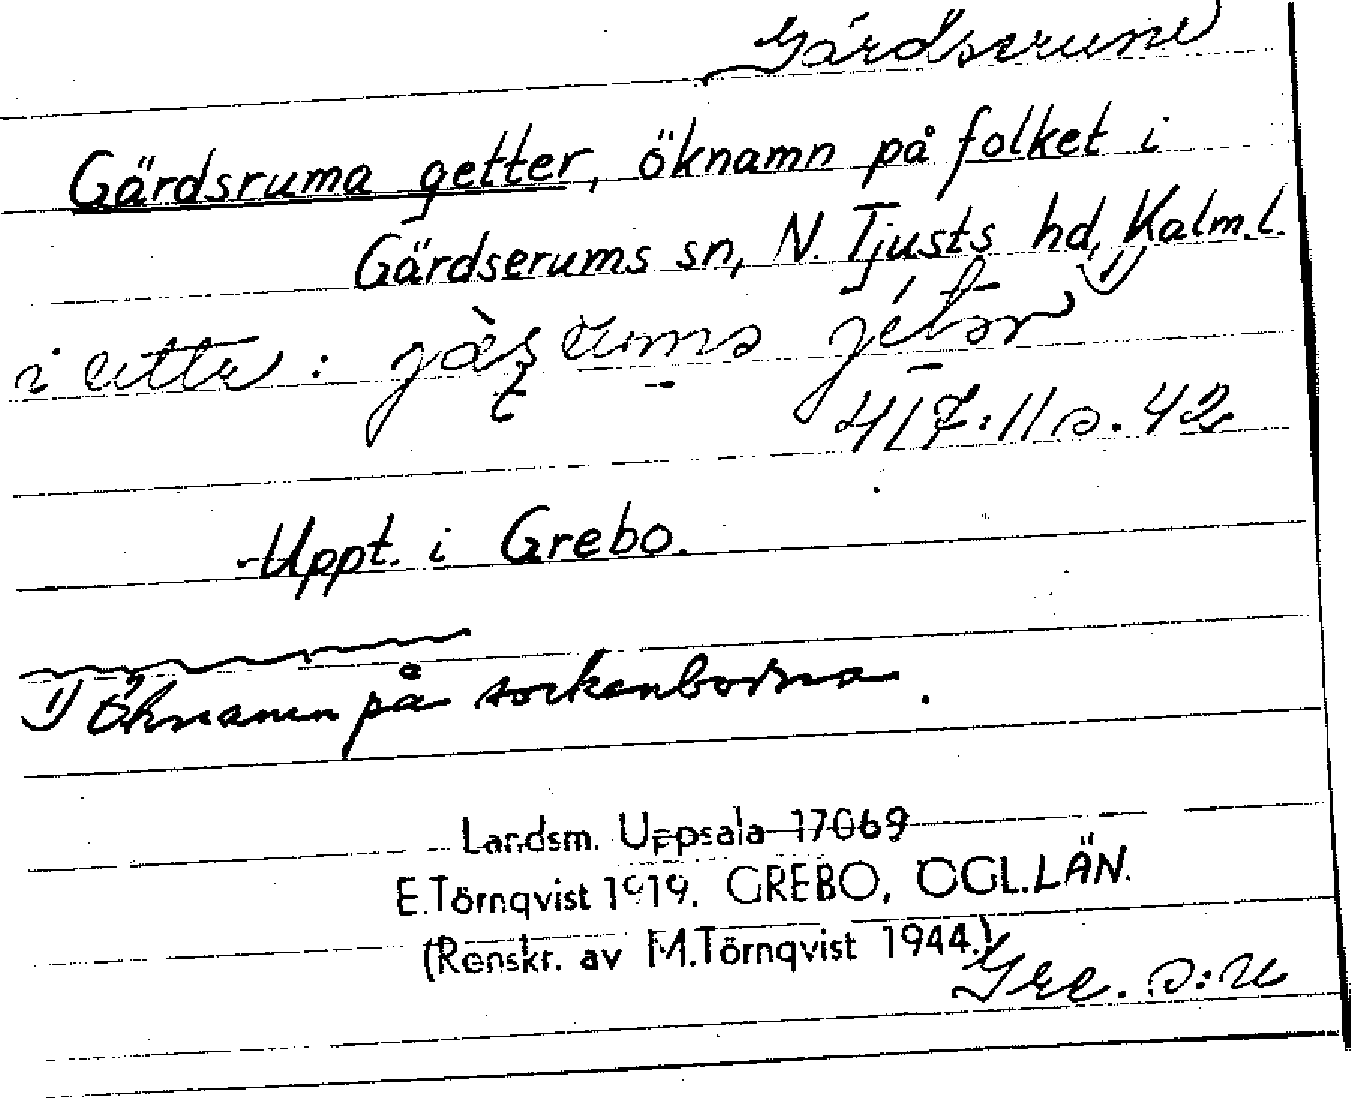 Gärdserum
Gärdsruma getter, öknamn på folket i
Gärdserums sn, N. Tjusts hd, Kalm.l. 1)
i uttr:
417:11 s. 42
-Uppt. i Grebo.
1) Öknamn på sockenborna.
Landsm. Uppsala 17069
E.Törnqvist 1919. GREBO, ÖGL.LÄN.
(Renskr. av M.Törnqvist 1944.)
Gre. s:n